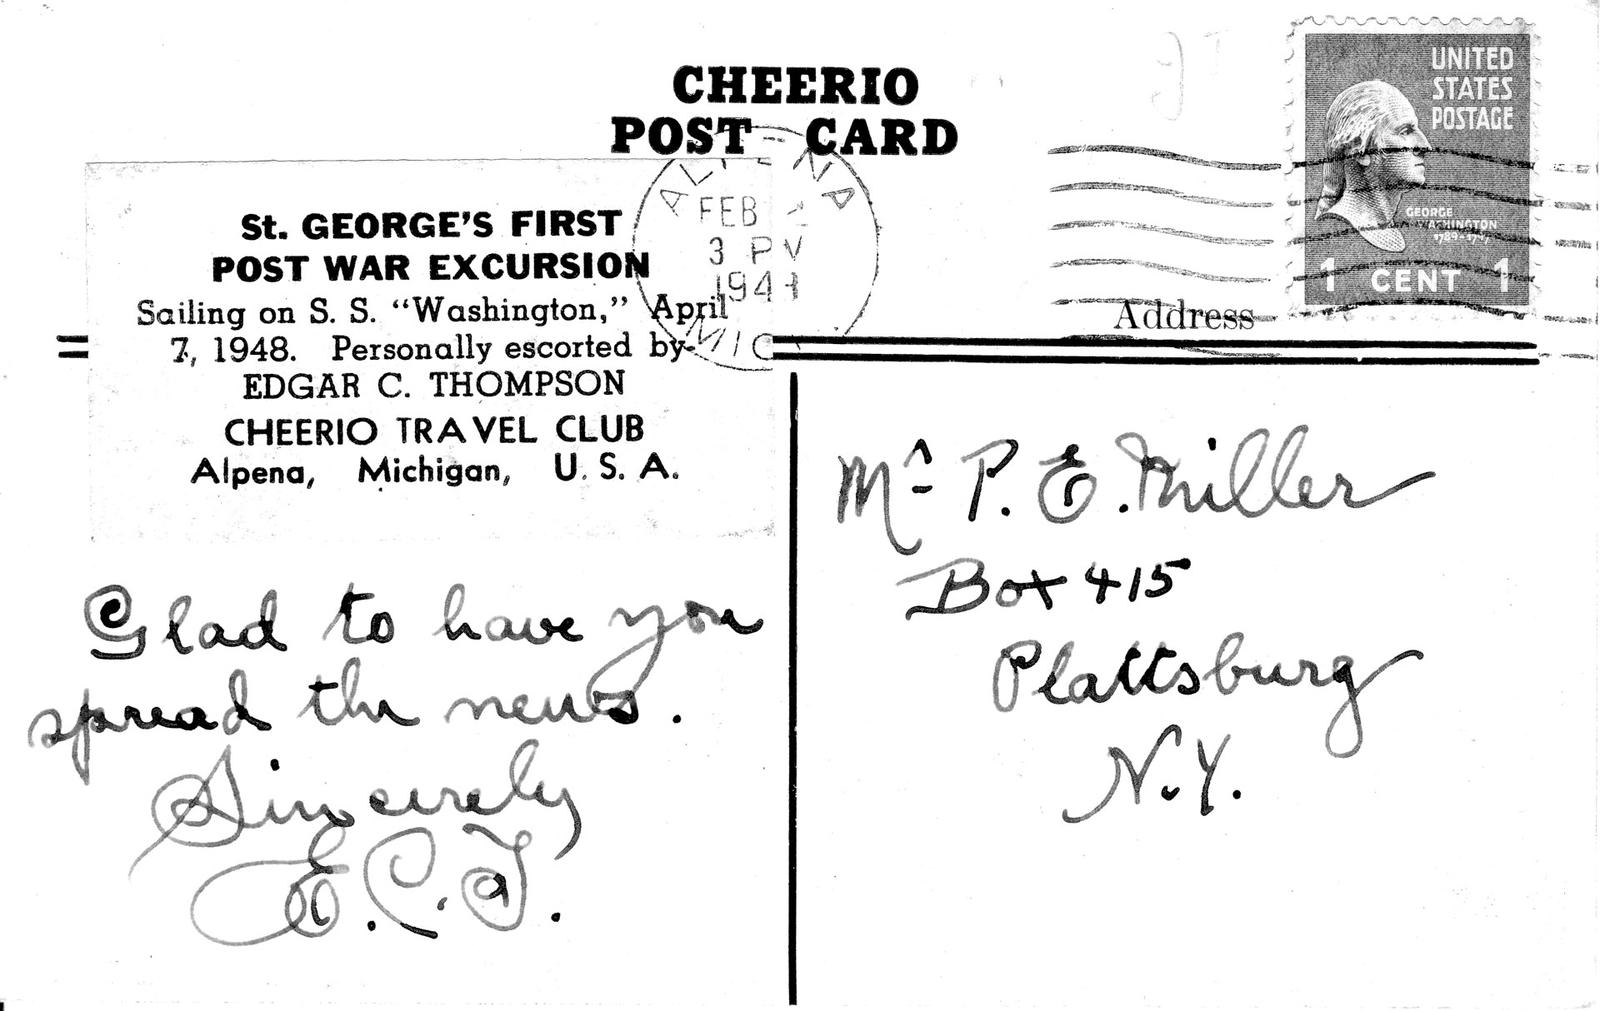 CHEERIO
POST CARD
UNITED
STATES
POSTAGE
GEORGE
WASHINGTON
1 CENT 1
ALPENA
FEB
3 P
194
MIC
St. GEORGE'S FIRST
POST WAR EXCURSION
Sailing on S. S. "Washington," April
7, 1948. Personally escorted by
EDGAR C. THOMPSON
CHEERIO TRAVEL CLUB
Alpena, Michigan, U. S. A.
Glad to have you
spread the news.
Sincerely
E. C. T.
Address
Mr P. E. Miller
Box 415
Plattsburg
N.Y.